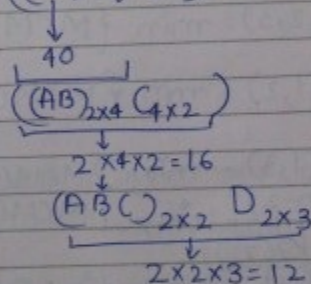 40
((AB)2×4 C4×2)
2×4×2=16
(ABC)2×2 D2×3
2×2×3=12